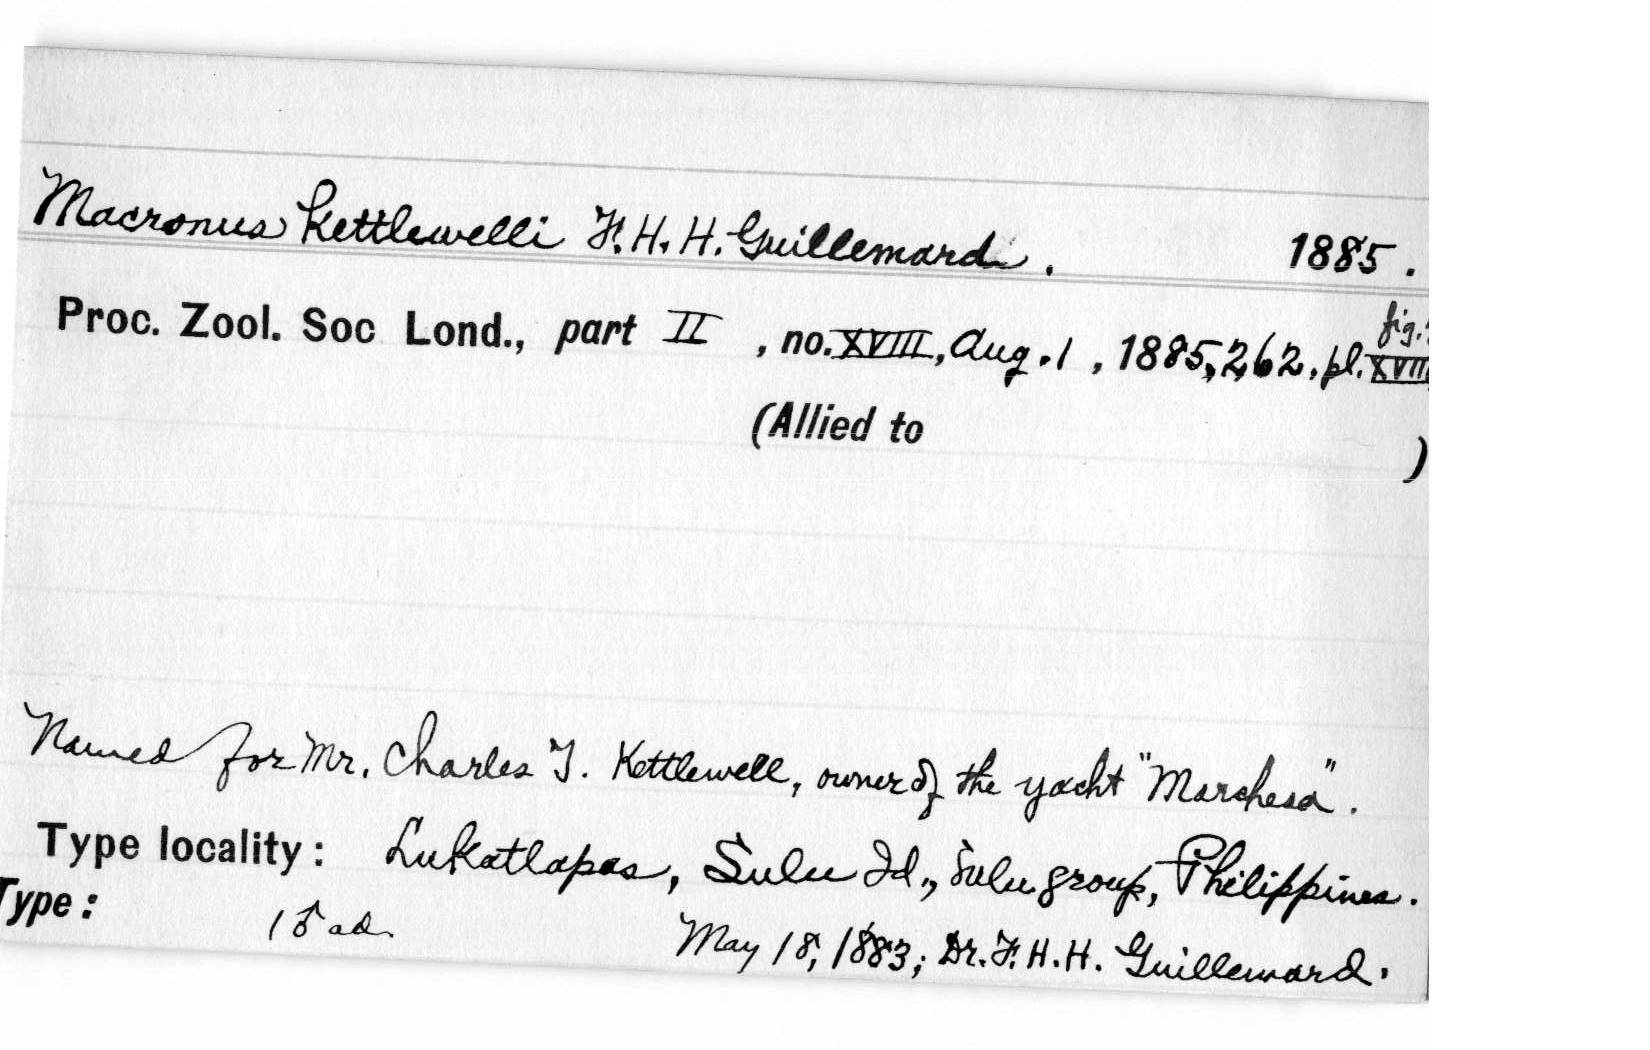 Macronus Kettlewelli F.H.H. Guillemard. 1885.
fig.
Proc. Zool. Soc Lond., part II , no. XVIII, Aug. 1 , 1885, 262, pl. XVIII
(Allied to )
Named for Mr. Charles T. Kettlewell, owner of the yacht "Marchesa".
Type locality: Lukatlapas, Sulu Id., Sulu group, Philippines.
Type: 1 ♂ ad. May 18, 1883; Dr. F.H.H. Guillemard.